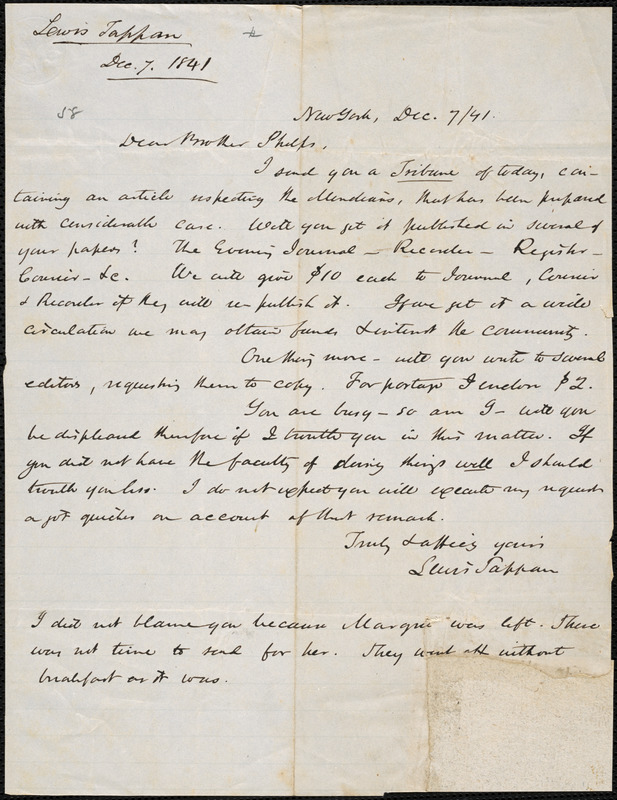 Lewis Tappan
Dec. 7. 1841
58
New York, Dec. 7/41.
Dear Brother Phelps,
I send you a Tribune of today, con-
taining an article respecting the Mendians, that has been prepared
with considerable care. Will you get it published in several of
your papers? The Evening Journal - Recorder - Register -
Courier - &c. We will give $10 each to Journal, Courier
& Recorder if they will re-publish it. If we get it a wide
circulation we may obtain funds & interest the community.
One thing more - will you write to several
editors, requesting them to copy. For postage I enclose $2.
You are busy - so am I - will you
be displeased therefore if I trouble you in this matter. If
you did not have the faculty of doing things well I should
trouble you less. I do not expect you will execute my requests
a jot quicker on account of that remark.
Truly & affec'y yours
Lewis Tappan
I did not blame you because Margru was left. There
was not time to send for her. They went off without
breakfast as it was.